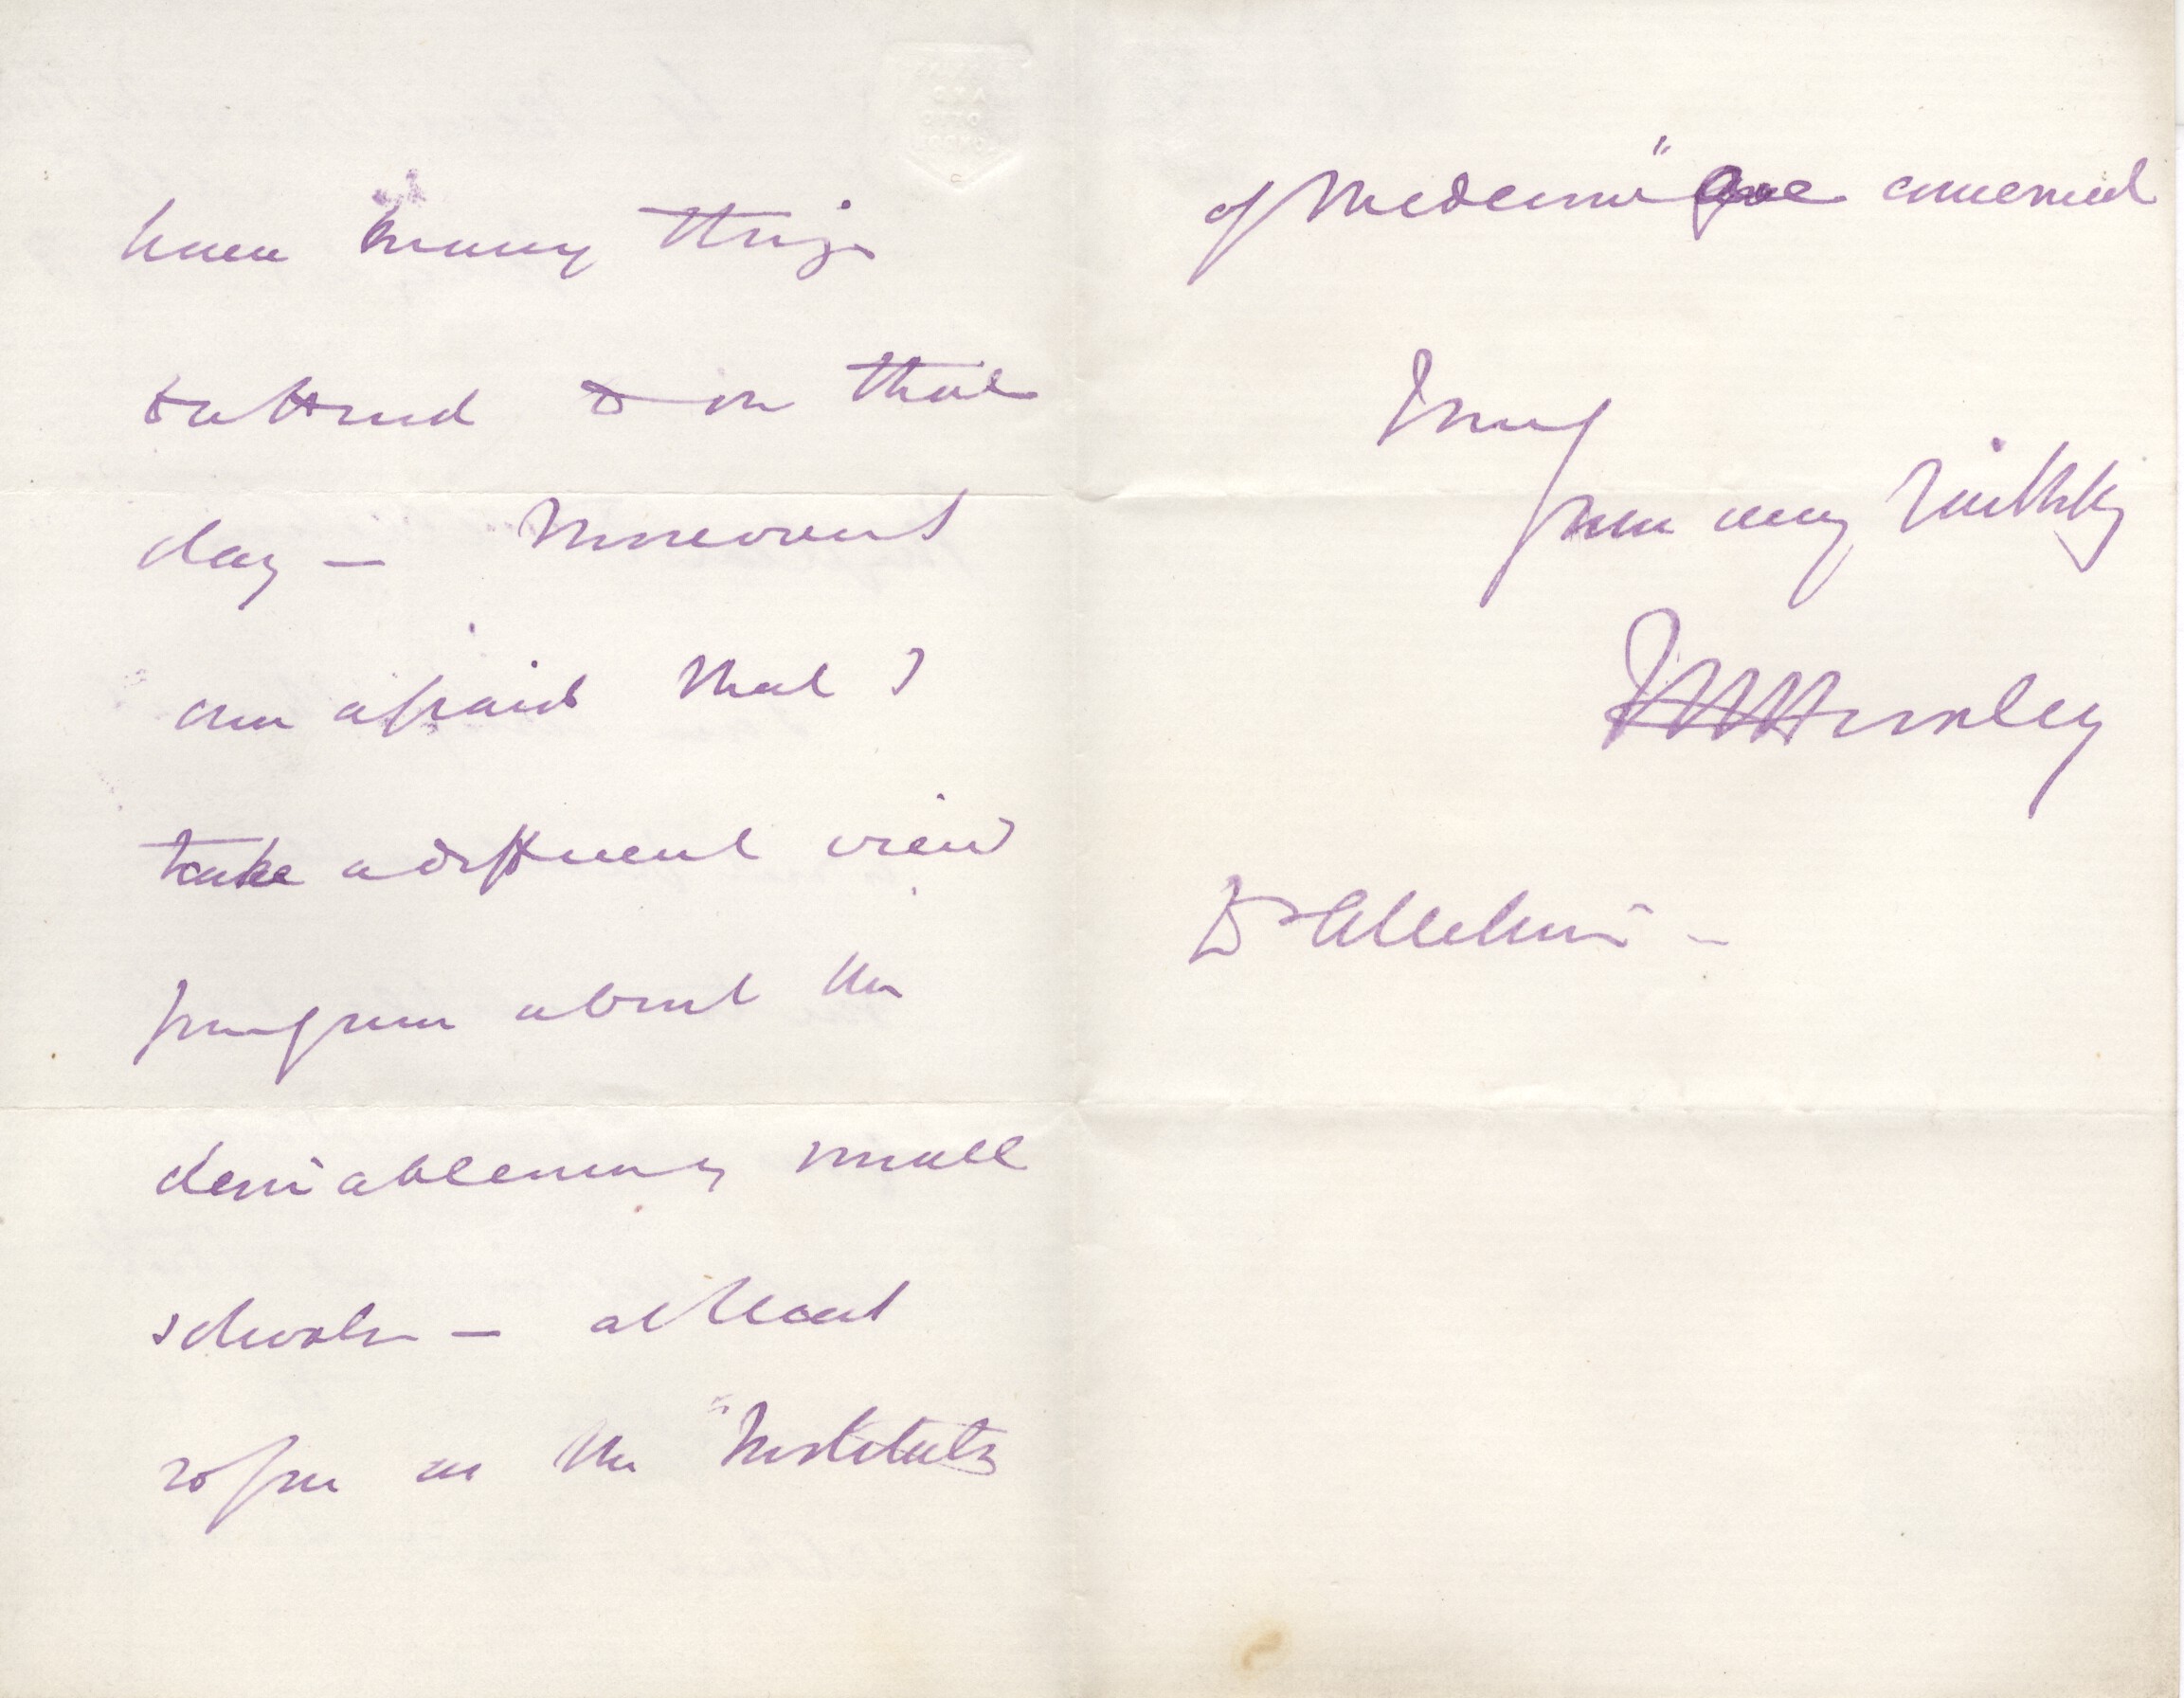 have many things
to attend to on that
day — Moreover I
am afraid that I
take a different view
from you about the
desirableness of small
schools — at least
so far as the "Institutes
of Medicine" are concerned
I am
yours very faithfully
T H Huxley
Dr Allchin —